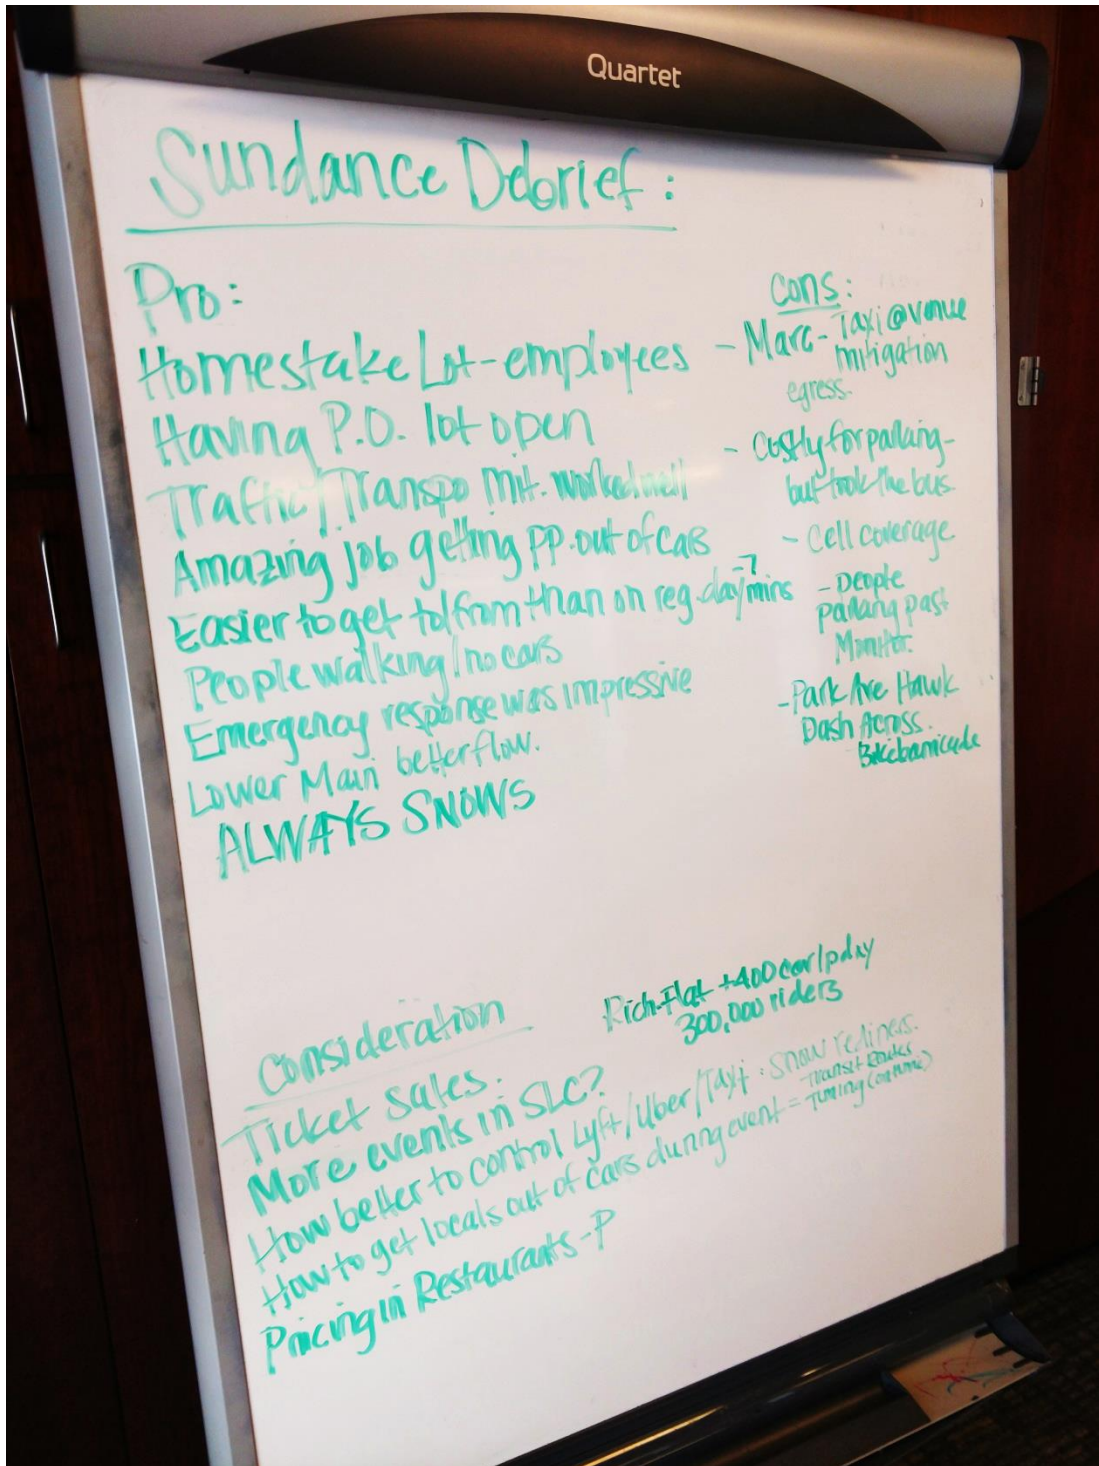 Quartet
Sundance Debrief:
Pro:
Homestake Lot-employees
Having P.O. lot open
Traffic/Transpo Mit. worked well
Amazing job getting pp. out of cars
Easier to get to/from than on reg. day -7 mins
People walking/no cars
Emergency response was impressive
Lower Main better flow.
ALWAYS SNOWS
Cons:
- Marc - Taxi @ venue
mitigation
egress.
- Costly for parking -
but took the bus
- Cell coverage
- People
parking past
Monitor.
- Park Ave Hawk
Dash Across.
- Bike barricade
Consideration
Rich-Flat +400 car/pday
300,000 riders
Ticket sales.
More events in SLC?
How better to control Lyft/Uber/Taxi: Snow
How to get locals out of cars during event =
Transit Routes
Timing
Pricing in Restaurants - P